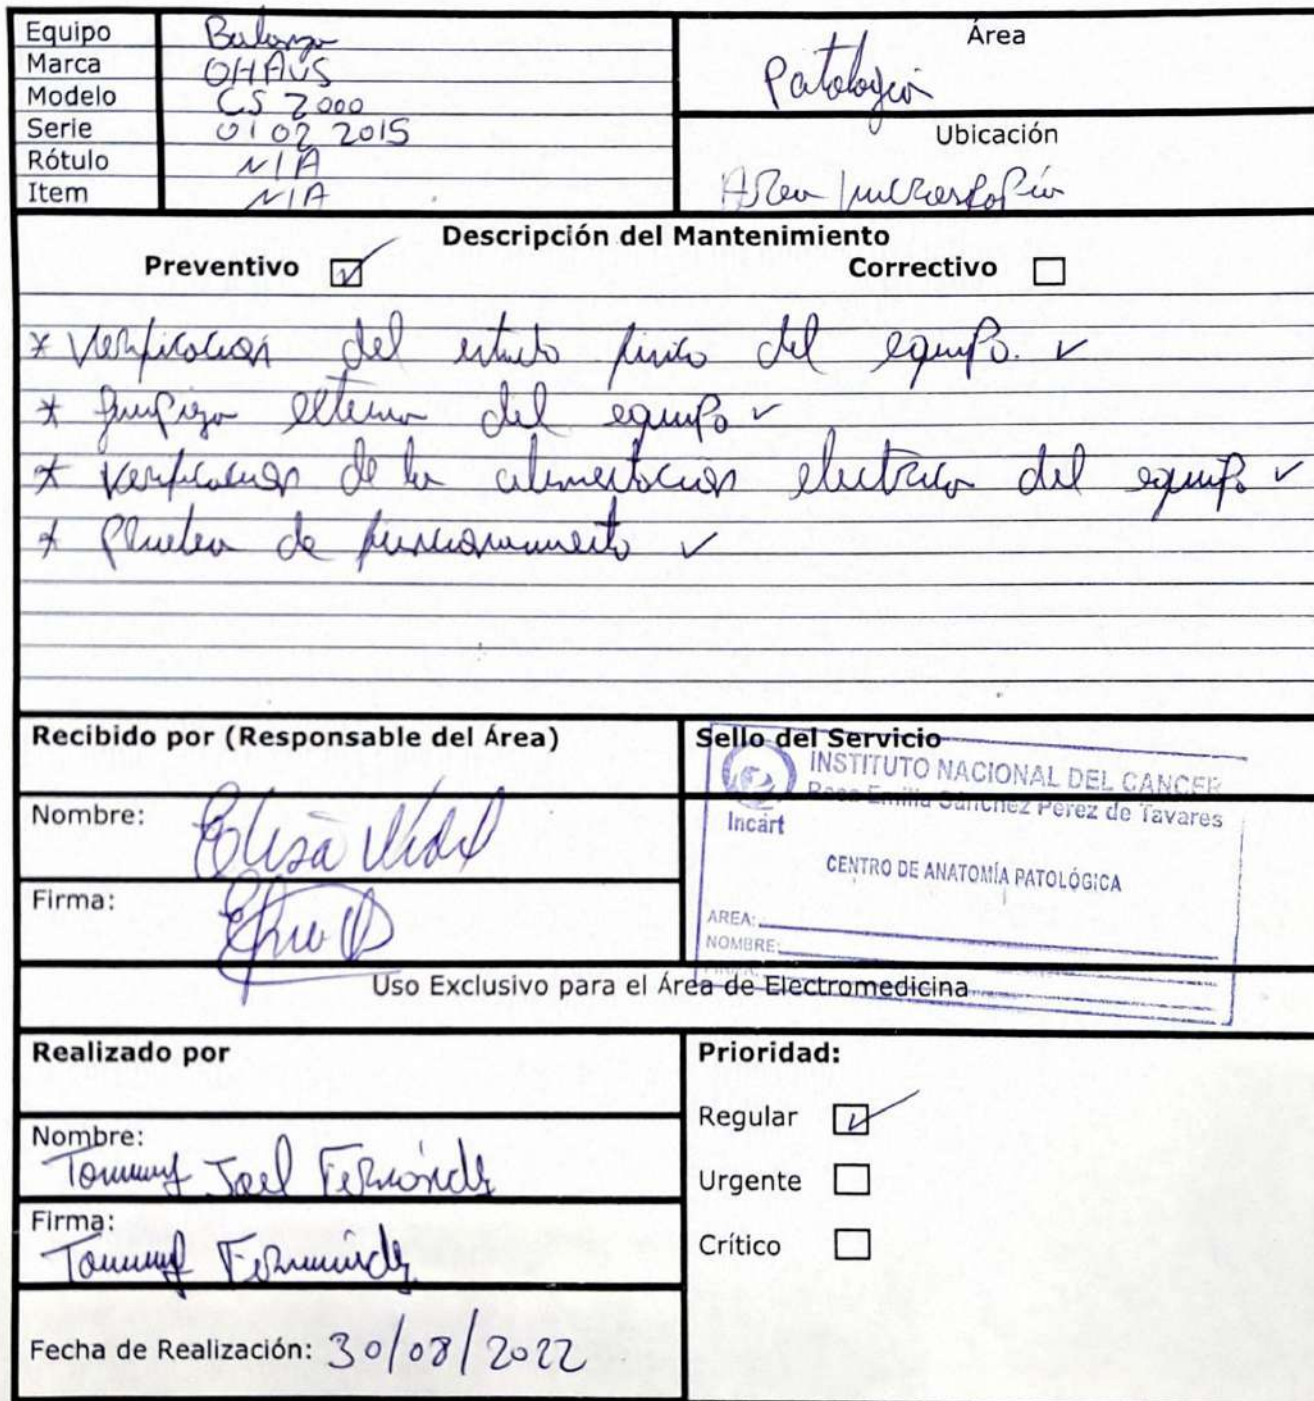 Equipo Balanza
Marca OHAUS
Modelo CS 2000
Serie 01 02 2015
Rótulo N/A
Item N/A
Área
Patología
Ubicación
Area Macroscopía
Descripción del Mantenimiento
Preventivo ☑ Correctivo ☐
* Verificacion del estado fisico del equipo. ✓
* Limpieza externa del equipo ✓
* Verificacion de la alimentacion electrica del equipo ✓
* Prueba de funcionamiento ✓
Recibido por (Responsable del Área)
Nombre: Elisa Vidal
Firma:
Sello del Servicio
INSTITUTO NACIONAL DEL CANCER
Rosa Emilia Sánchez Pérez de Tavares
Incart
CENTRO DE ANATOMÍA PATOLÓGICA
AREA:
NOMBRE:
Uso Exclusivo para el Área de Electromedicina
Realizado por
Nombre:
Tommy Joel Fernández
Firma:
Tommy Fernández
Fecha de Realización: 30/08/2022
Prioridad:
Regular ☑
Urgente ☐
Crítico ☐